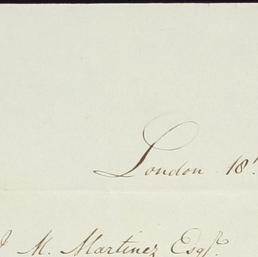 London 18
M. Martinez Esqr.